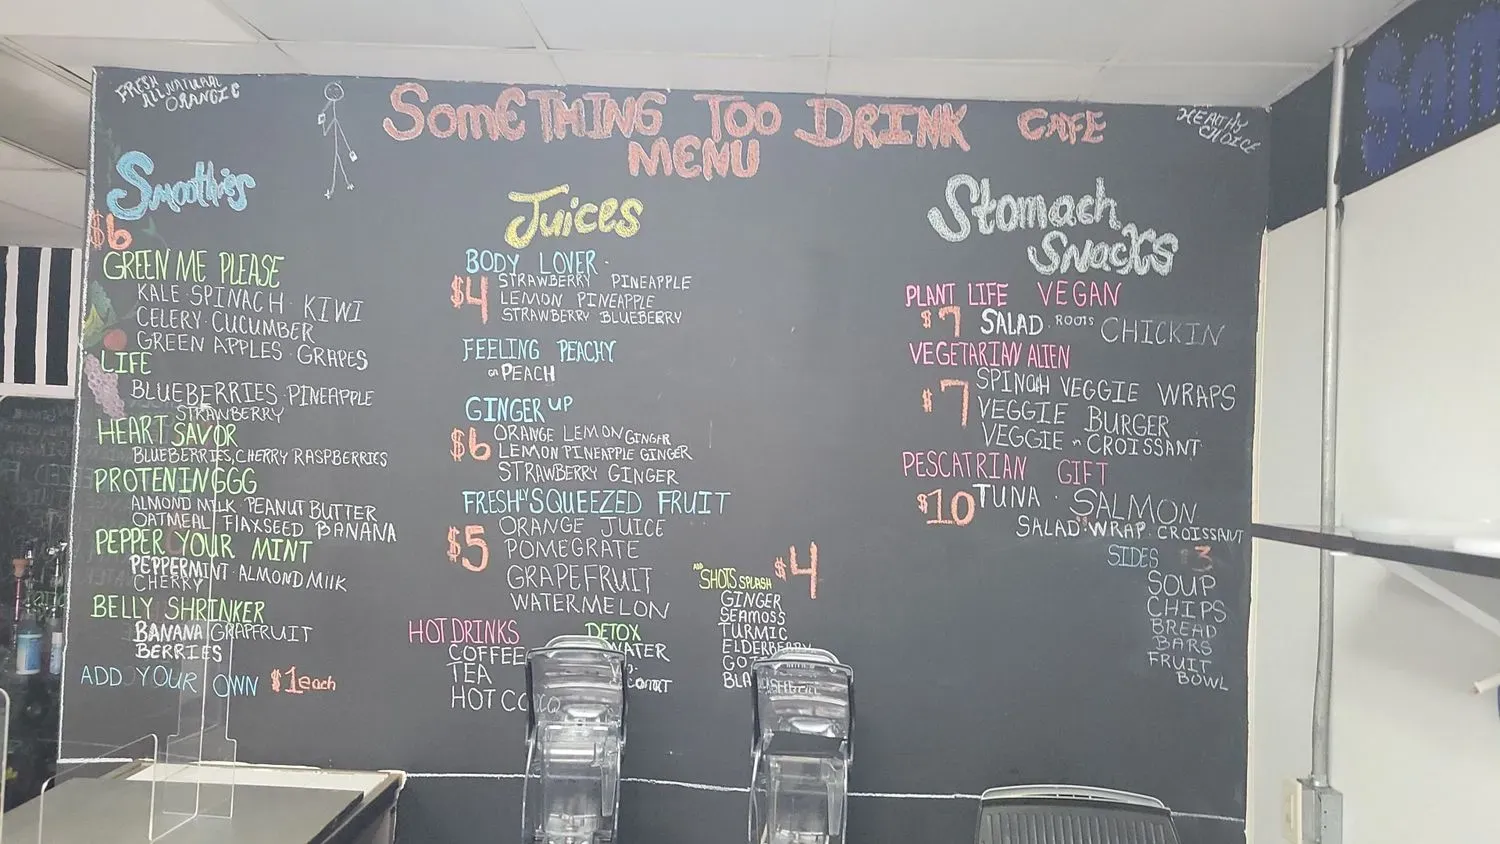 FRESH
ALL NATURAL
ORANGIC
SOMETHING TOO DRINK CAFE
MENU
HEATHY
CHOICE
Smoothies
$6
GREEN ME PLEASE
KALE SPINACH · KIWI
CELERY · CUCUMBER
GREEN APPLES · GRAPES
LIFE
BLUEBERRIES · PINEAPPLE
STRAWBERRY
HEART SAVOR
BLUEBERRIES, CHERRY RASPBERRIES
PROTENINGGG
ALMOND MILK PEANUT BUTTER
OATMEAL FLAXSEED BANANA
PEPPER YOUR MINT
PEPPERMINT · ALMOND MILK
CHERRY
BELLY SHRINKER
BANANA GRAPFRUIT
BERRIES
ADD YOUR OWN $1 each
Juices
BODY LOVER
$4 STRAWBERRY PINEAPPLE
LEMON PINEAPPLE
STRAWBERRY BLUEBERRY
FEELING PEACHY
PEACH
GINGER UP
$6 ORANGE LEMON GINGER
LEMON PINEAPPLE GINGER
STRAWBERRY GINGER
FRESHLY SQUEEZED FRUIT
$5 ORANGE JUICE
POMEGRATE
GRAPEFRUIT
WATERMELON
HOT DRINKS
COFFEE
TEA
HOT COCO
DETOX
WATER
ADD SHOTS SPLASH $4
GINGER
SEAMOSS
TURMIC
ELDERBERRY
Stomach
Snacks
PLANT LIFE VEGAN
$7 SALAD · ROOTS CHICKIN
VEGETARIAN ALIEN
$7 SPINACH VEGGIE WRAPS
VEGGIE BURGER
VEGGIE CROISSANT
PESCATRIAN GIFT
$10 TUNA · SALMON
SALAD WRAP CROISSANT
SIDES $3
SOUP
CHIPS
BREAD
BARS
FRUIT
BOWL
Som